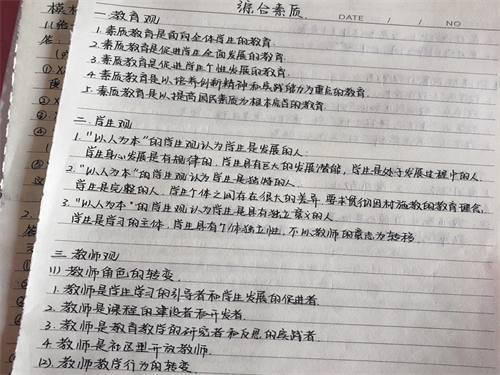 综合素质
DATE / / NO
一 教育观
1. 素质教育是面向全体学生的教育
2. 素质教育是促进学生全面发展的教育
3. 素质教育是促进学生个性发展的教育
4. 素质教育是以培养创新精神和实践能力为重点的教育
5. 素质教育是以提高国民素质为根本宗旨的教育
二. 学生观
1. "以人为本"的学生观认为学生是发展的人.
学生身心发展是有规律的, 学生具有巨大的发展潜能, 学生是处于发展过程中的人.
2. "以人为本"的学生观认为学生是独特的人.
学生是完整的人, 学生个体之间存在很大的差异, 要求贯彻因材施教的教育理念.
3. "以人为本"的学生观认为学生是具有独立意义的人.
学生是学习的主体, 学生具有个体独立性, 不以教师的意志为转移
三 教师观
(1) 教师角色的转变
1. 教师是学生学习的引导者和学生发展的促进者
2. 教师是课程的建设者和开发者.
3. 教师是教育教学的研究者和反思的实践者
4. 教师是社区型开放教师.
(2). 教师教学行为的转变